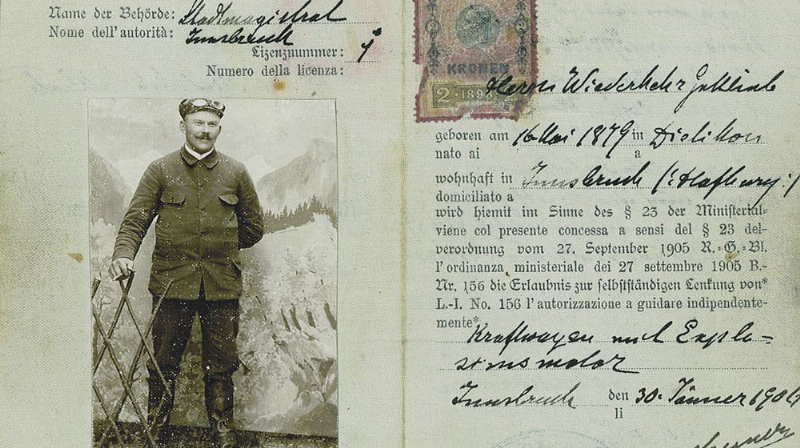 Name der Behörde: Stadtmagistrat
Nome dell'autorità: Innsbruck
Lizenznummer: 1
Numero della licenza:
KRONEN
2 1898
Herrn Wiederkehr Gottlieb
geboren am 16 Mai 1879 in Dietikon
nato ai a
wohnhaft in Innsbruck (: Hofburg :)
domiciliato a
wird hiemit im Sinne des § 23 der Ministerial-
viene col presente concessa a sensi del § 23 del-
verordnung vom 27. September 1905 R.-G.-Bl.
l'ordinanza ministeriale dei 27 settembre 1905 B.-
Nr. 156 die Erlaubnis zur selbstständigen Lenkung von*
L.-I. No. 156 l'autorizzazione a guidare indipendente-
mente*
Kraftwagen mit Explo-
sionsmotor
Innsbruck den 30. Jänner 1906
li